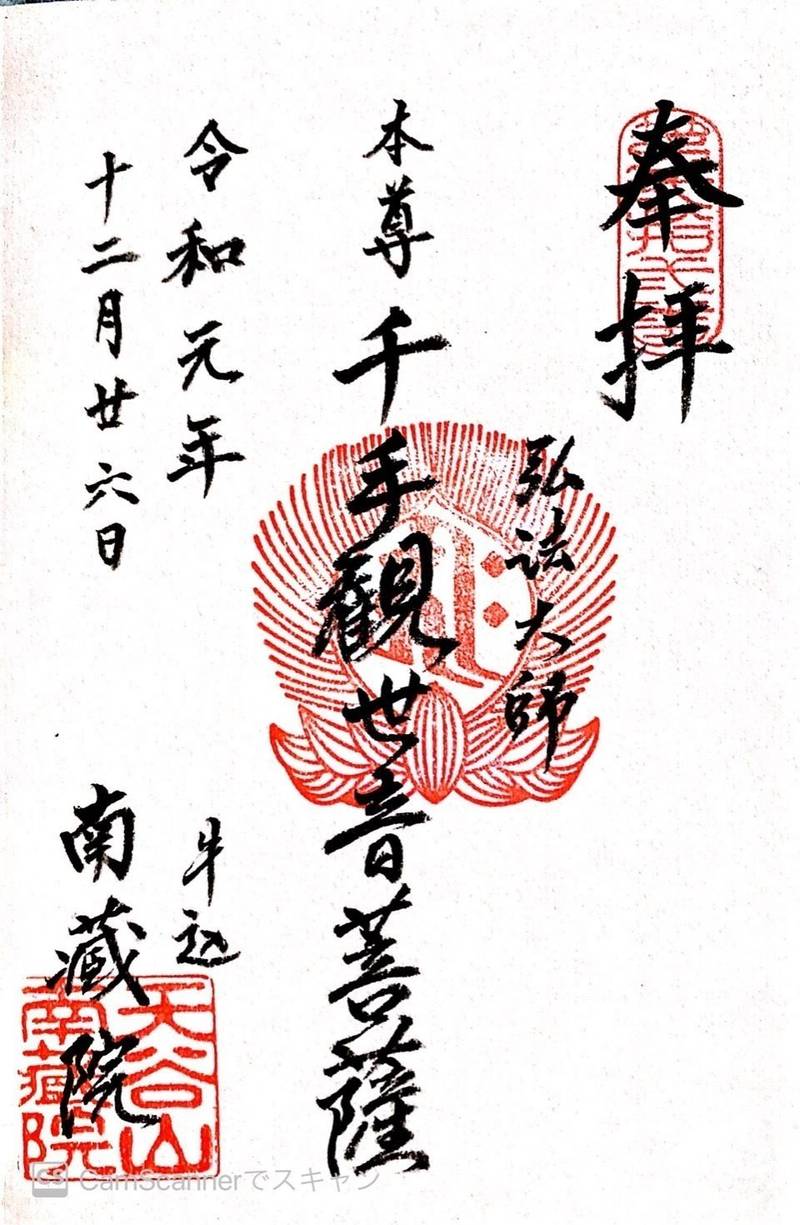 奉拝
弘法大師
本尊 千手觀世音菩薩
令和元年
十二月廿六日
牛込
南藏院
天谷山
南藏院
CS CamScannerでスキャン